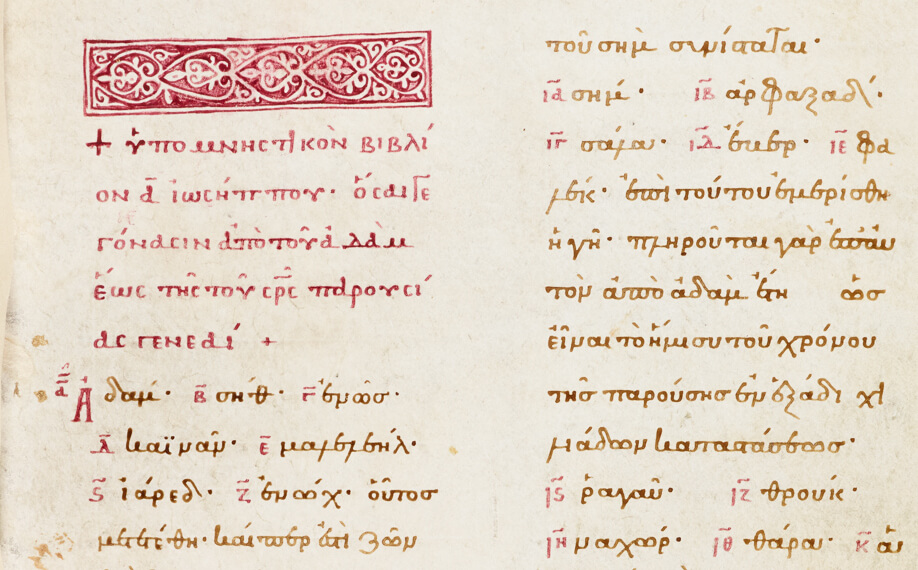 + ὑπομνηστικὸν βιβλί
ον ᾱ ἰωσήππου· ὅσαι γε
γόνασιν ἀπὸ τοῦ ἀδὰμ
ἕως τῆς τοῦ σρ̅ς παρουσί
ας γενεαί +
ᾱ Ἀδάμ· β̅ σήθ· γ̅ ἐνώς·
δ̅ καϊνάν· ε̅ μαλελεήλ·
ς̅ ἰάρεδ· ζ̅ ἐνώχ· οὗτος
μετετέθη· καίπερ ἔτι ζῶν
τοῦ σημ συνίσταται·
ια̅ σήμ· ιβ̅ ἀρφαξάδ·
ιγ̅ σάλα· ιδ̅ ἕβερ· ιε̅ φα
λέκ· ἐπὶ τούτου ἐμερίσθη
ἡ γῆ· πληροῦται γὰρ
τὸν ἀπὸ ἀδὰμ ἔτη ὡς
εἶναι τὸ ἥμισυ τοῦ χρόνου
τῆς παρούσης ἐν ἑξάδι χι
λιάδων καταστάσεως·
ις̅ ῥαγαῦ· ιζ̅ σερούκ·
ιη̅ ναχώρ· ιθ̅ θάρα· κ̅ ἀ